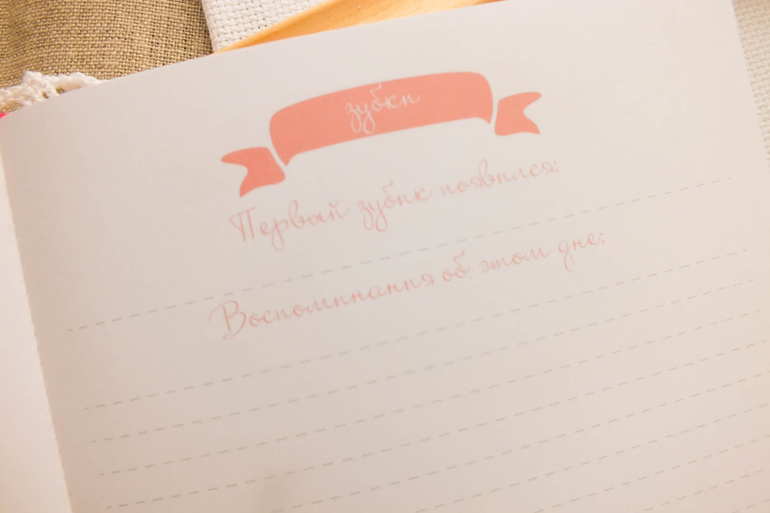 зубки
Первый зубик появился:
Воспоминания об этом дне: